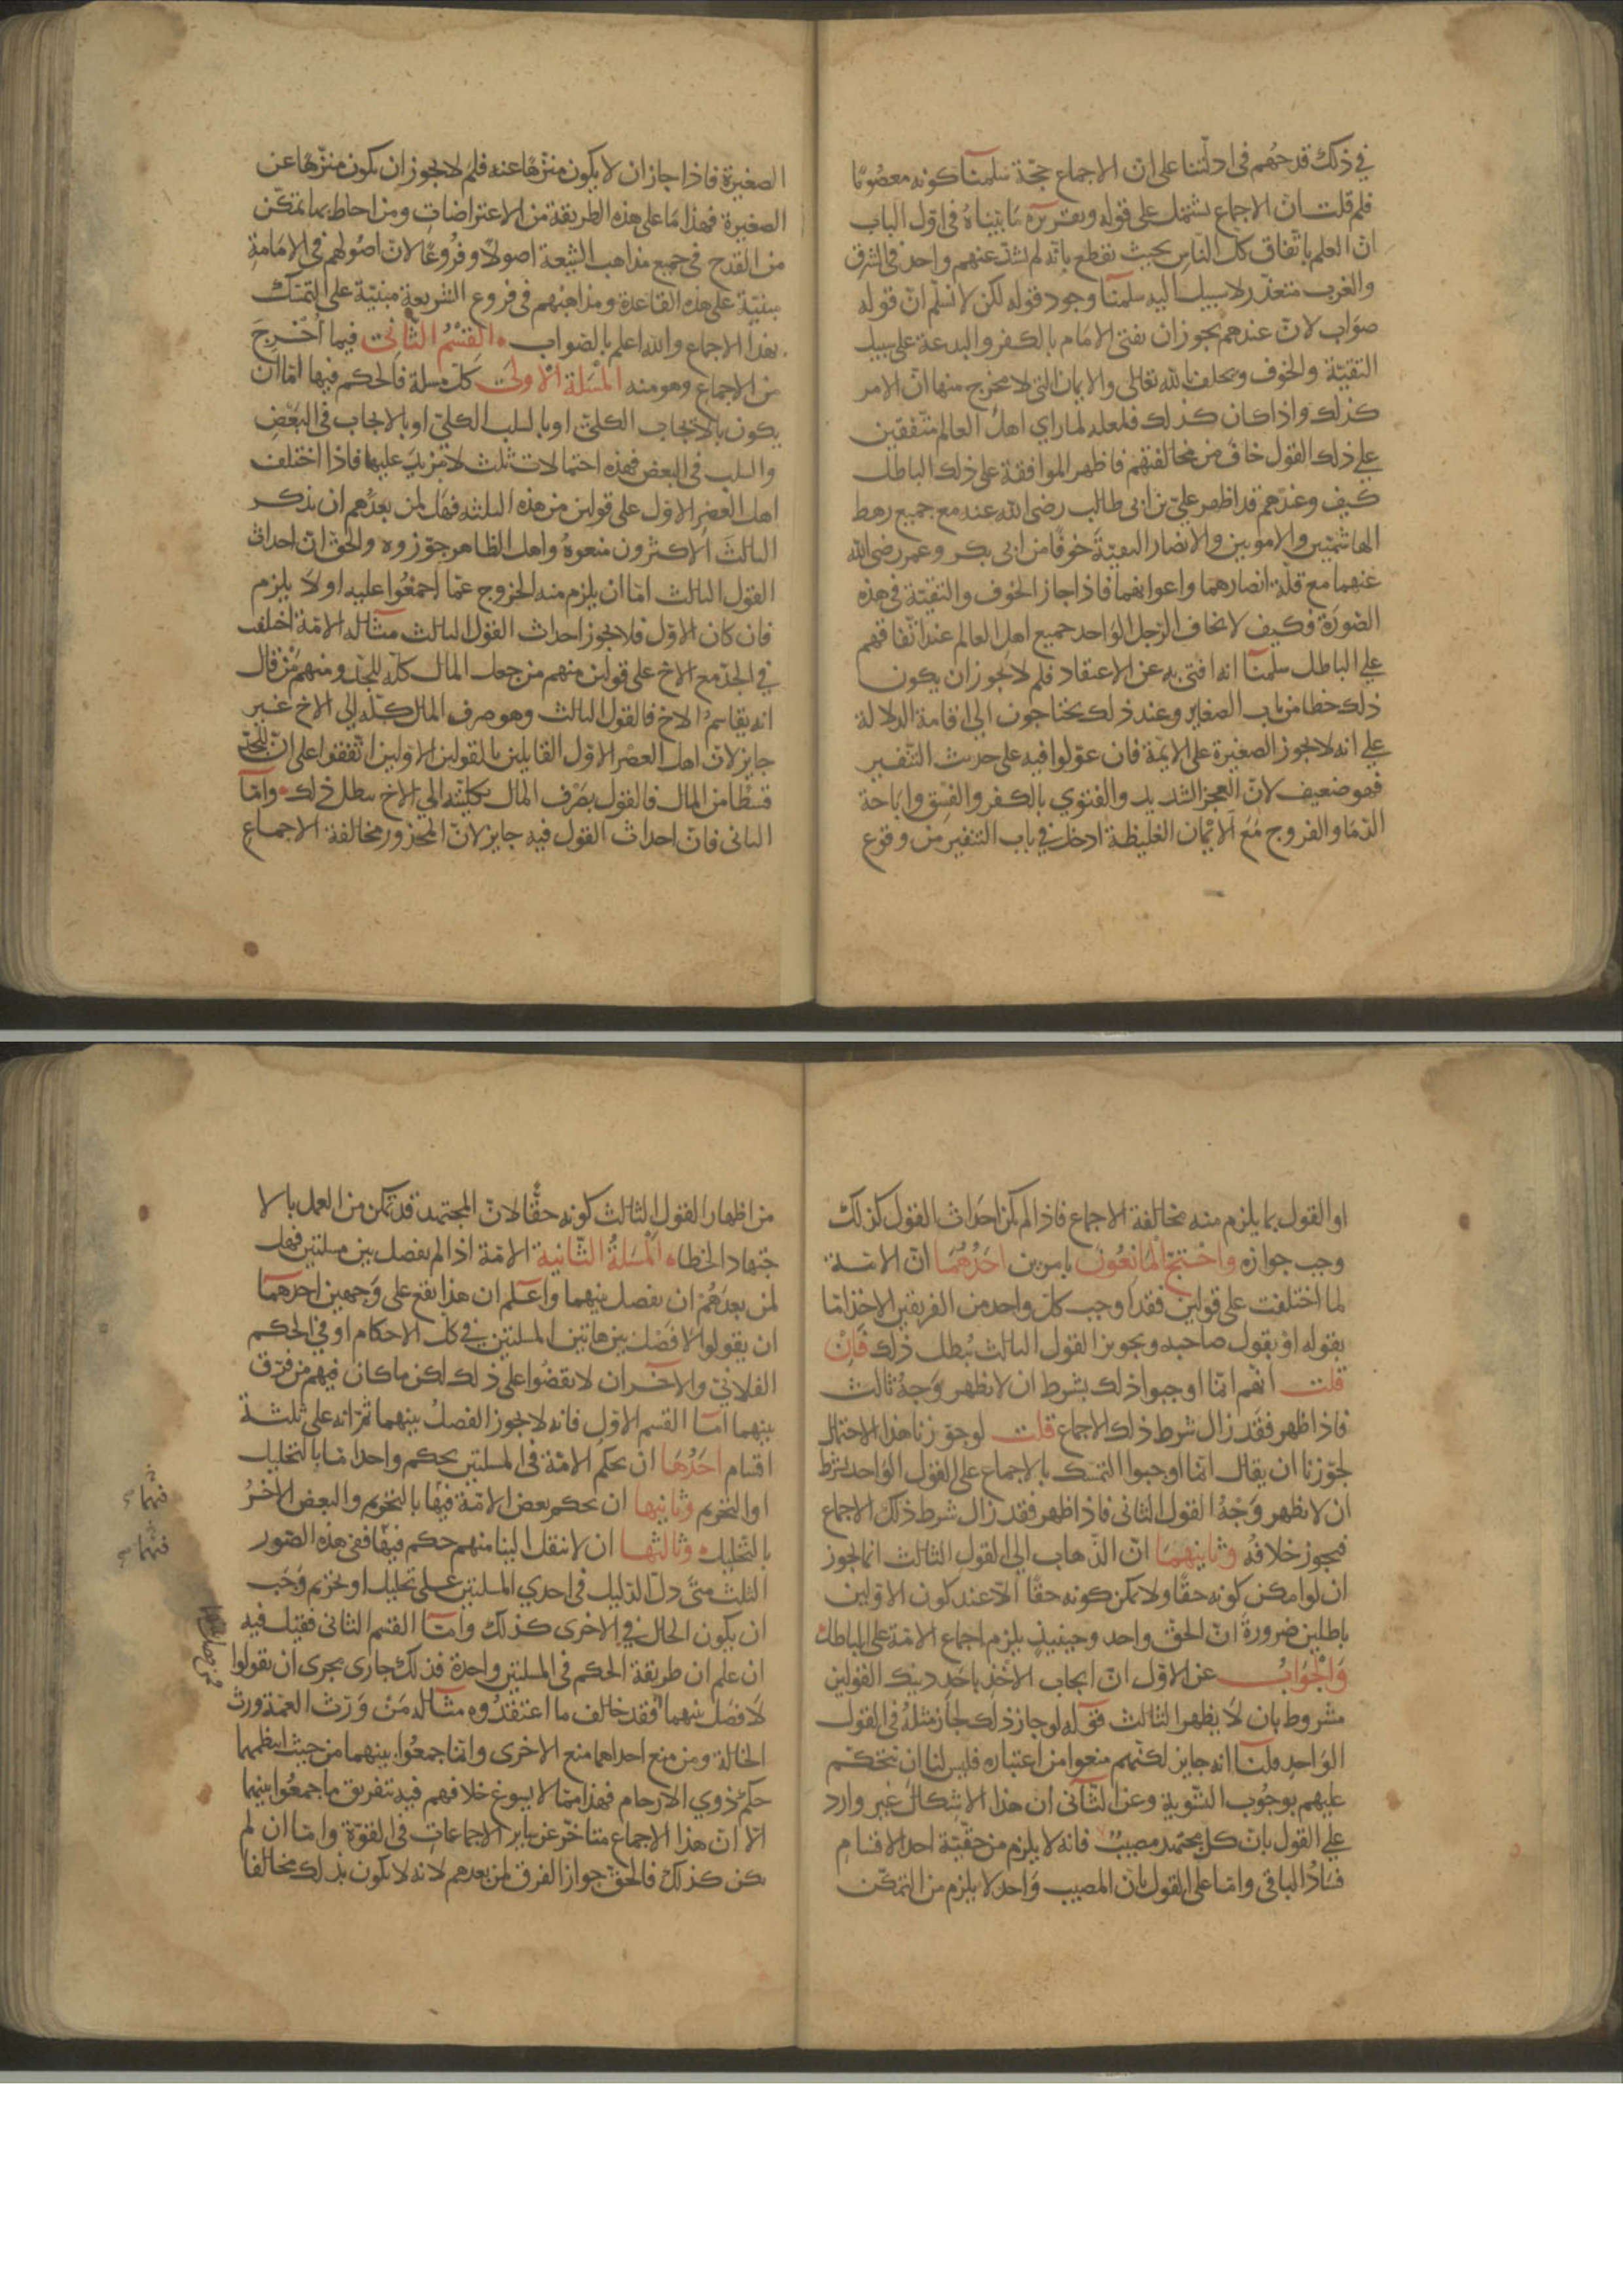 في ذلك قدحهم في ادلتنا على ان الاجماع حجّة سلمنا كونه معصومًا
فلم قلت ان الاجماع يشتمل على قوله وتقريره ما بيّناه في اوّل الباب
انّ العلم باتّفاق كل النّاس بحيث نقطع بانّه لم يشذّ عنهم واحد في الشرق
والغرب متعذّر لا سبيل اليه سلمنا وجود قوله لكن لا نسلّم انّ قوله
صواب لانّ عندهم يجوز ان يفتي الامام بالكفر والبدعة على سبيل
التقيّة والخوف ويحلف بالله تعالى والايمان التي لا مخرج منها انّ الامر
كذلك واذا كان كذلك فلعله لما راي اهل العالم متّفقين
على ذلك القول خاف من مخالفتهم فاظهر الموافقة على ذلك الباطل
كيف وعندهم قد اظهر عليّ بن ابي طالب رضي الله عنه مع جميع رهط
الهاشميّين والامويين والانصار التقيّة خوفًا من ابي بكر وعمر رضي الله
عنهما مع قلّة انصارهما واعوانهما فاذا جاز الخوف والتقيّة في هذه
الصّورة فكيف لا يخاف الرّجل الواحد جميع اهل العالم عند اتّفاقهم
على الباطل سلمنا انه افتى به عن الاعتقاد فلم لا يجوز ان يكون
ذلك خطا من باب الصغاير وعند ذلك يحتاجون الى اقامة الدلالة
على انه لا يجوز الصغيرة على الايمّة فان عوّلوا فيه على حديث التنفير
فهو ضعيف لانّ العجز الشديد والفتوي بالكفر والفسق واباحة
الدّما والفروج مع الايمان الغليظة ادخل في باب التنفير من وقوع
الصغيرة فاذا جاز ان لا يكون منزّهًا عنه فلم لا يجوز ان يكون منزّهًا عن
الصغيرة فهذا ما على هذه الطريقة من الاعتراضات ومن احاط بها تمكّن
من القدح في جميع مذاهب الشيعة اصولًا وفروعًا لانّ اصولهم في الامامة
مبنيّة على هذه القاعدة ومذاهبهم في فروع الشريعة مبنيّة على التمسّك
بهذا الاجماع والله اعلم بالصّواب القسم الثاني فيما اُخرج
من الاجماع وهو منه المسلة الاولى كلّ مسلة فالحكم فيها امّا ان
يكون بالايجاب الكلّي او بالسلب الكلي او بالايجاب في البعض
والسلب في البعض فهذه احتمالات ثلث لا مزيد عليها فاذا اختلف
اهل العصر الاوّل على قولين من هذه الثلثه فهل لمن بعدهم ان يذكر
الثالث الاكثرون منعوهُ واهل الظاهر جوّزوه والحق انّ احداث
القول الثالث امّا ان يلزم منه الخروج عمّا اجمعوا عليه او لا يلزم
فان كان الاوّل فلا يجوز احداث القول الثالث مثاله الامّة اختلف
في الجدّ مع الاخ على قولين منهم من جعل المال كلّه للجدّ ومنهم من قال
انه يقاسم الاخ فالقول الثالث وهو صرف المال كلّه الى الاخ غير
جايز لانّ اهل العصر الاوّل القايلين بالقولين الاوّلين اتّفقوا على انّ للجدّ
قسطًا من المال فالقول بصرف المال بكليّته الى الاخ يبطل ذلك وامّا
الثاني فانّ احداث القول فيه جايز لانّ المحذور مخالفة الاجماع
او القول بما يلزم منه مخالفة الاجماع فاذا لم يكن احداث القول كذلك
وجب جوازه واحتجّ المانعون بامرين احدهما انّ الامّة
لما اختلفت على قولين فقد اوجب كل واحد من الفريقين الاخذ امّا
بقوله او بقول صاحبه وتجويز القول الثالث يُبطل ذلك فان
قلت انهم انّما اوجبوا ذلك بشرط ان لا يظهر وجهٌ ثالث
فاذا ظهر فقد زال شرط ذلك الاجماع قلت لو جوّزنا هذا الاحتمال
لجوّزنا ان يقال انّما اوجبوا التمسّك بالاجماع على القول الواحد بشرط
ان لا يظهر وجهُ القول الثاني فاذا ظهر فقد زال شرط ذلك الاجماع
فيجوز خلافه وثانيهما انّ الذّهاب الى القول الثالث انما يجوز
ان لو امكن كونه حقًا ولا يمكن كونه حقًا الّا عند كون الاوّلين
باطلين ضرورة انّ الحق واحد وحينيذ يلزم اجماع الامّة على الباطل
والجواب عن الاوّل انّ ايجاب الاخذ باحد ذينك القولين
مشروط بان لا يظهر الثالث قوله لو جاز ذلك لجاز مثله في القول
الواحد قلنا انه جايز لكنّهم منعوا من اعتباره فليس لنا ان نتحكّم
عليهم بوجوب التسّوية وعن الثاني ان هذا الاشكال غير وارد
على القول بانّ كل مجتهد مصيبٌ فانه لا يلزم من حقّيّة احد الاقسام
فسادُ الباقي وامّا على القول بان المصيب واحد لا يلزم من التمكّن
من اظهار القول الثالث كونه حقًّا لانّ المجتهد قد تمكن من العمل بالا
جتهاد الخطا المسلة الثّانية الامّة اذا لم يفصل بين مسلتين فهل
لمن بعدهم ان يفصل بينهما واعلم ان هذا يقع على وجهين احدهما
ان يقولوا لا فصل بين هاتين المسلتين في كل الاحكام او في الحكم
الفلاني والآخر ان لا يقضوا على ذلك لكن ما كان فيهم من فرّق
بينهما امّا القسم الاوّل فانه لا يجوز الفصل بينهما ثمّ انه على ثلثة
اقسام احدها ان يحكم الامّة في المسلتين بحكم واحد امّا بالتحليل
او التحريم وثانيها ان يحكم بعض الامّة فيها بالتحريم والبعض الاخر
بالتّحليل وثالثها ان لا ينقل الينا منهم حكم فيها ففي هذه الصّور
الثلث متى دلّ الدّليل في احدي المسلتين على تحليل او تحريم وجب
ان يكون الحال في الاخرى كذلك وامّا القسم الثاني فقيل فيه
ان علم ان طريقة الحكم في المسلتين واحدة فذلك جاري مجرى ان يقولوا
لا فصل بينهما فقد خالف ما اعتقدوه مثاله من ورّث العمّة ورث
الخالة ومن منع احداهما منع الاخرى وانّما جمعوا بينهما من حيث انتظمهما
حكم ذوي الارحام فهذا ممّا لا يسوغ خلافهم فيه بتفريق ما جمعوا بينهما
الّا انّ هذا الاجماع متاخّر عن ساير الاجماعات في القوّة وامّا ان لم
يكن كذلك فالحقّ جواز الفرق لمن بعدهم لانه لا يكون بذلك مخالفًا
فيهما
فيهما